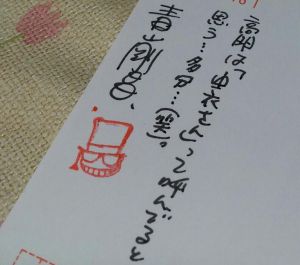 高明は「由衣さん」って呼んでると
思う…多分…(笑)。
青山剛昌